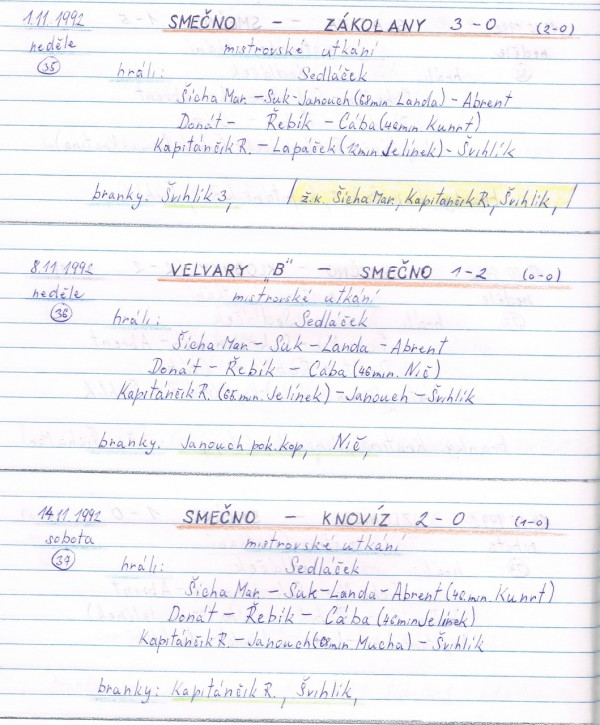 1.11.1992 SMEČNO - ZÁKOLANY 3-0 (2-0)
neděle mistrovské utkání
35 hráli: Sedláček
Šícha Mar. - Suk - Janouch (68min. Landa) - Abrent
Donát - Řebík - Cába (46min. Kunrt)
Kapitánčik R. - Lapáček (12min Jelínek) - Švihlík
branky: Švihlík 3, / ž.k. Šícha Mar., Kapitánčik R., Švihlík, /
8.11.1992 VELVARY „B" - SMEČNO 1-2 (0-0)
neděle mistrovské utkání
36 hráli: Sedláček
Šícha Mar. - Suk - Landa - Abrent
Donát - Řebík - Cába (46min. Nič)
Kapitánčik R. (65min. Jelínek) - Janouch - Švihlík
branky. Janouch pok.kop, Nič,
14.11.1992 SMEČNO - KNOVÍZ 2-0 (1-0)
sobota mistrovské utkání
37 hráli: Sedláček
Šícha Mar. - Suk - Landa - Abrent (46min. Kunrt)
Donát - Řebík - Cába (46min Jelínek)
Kapitánčik R. - Janouch (min. Mucha) - Švihlík
branky: Kapitánčik R., Švihlík,